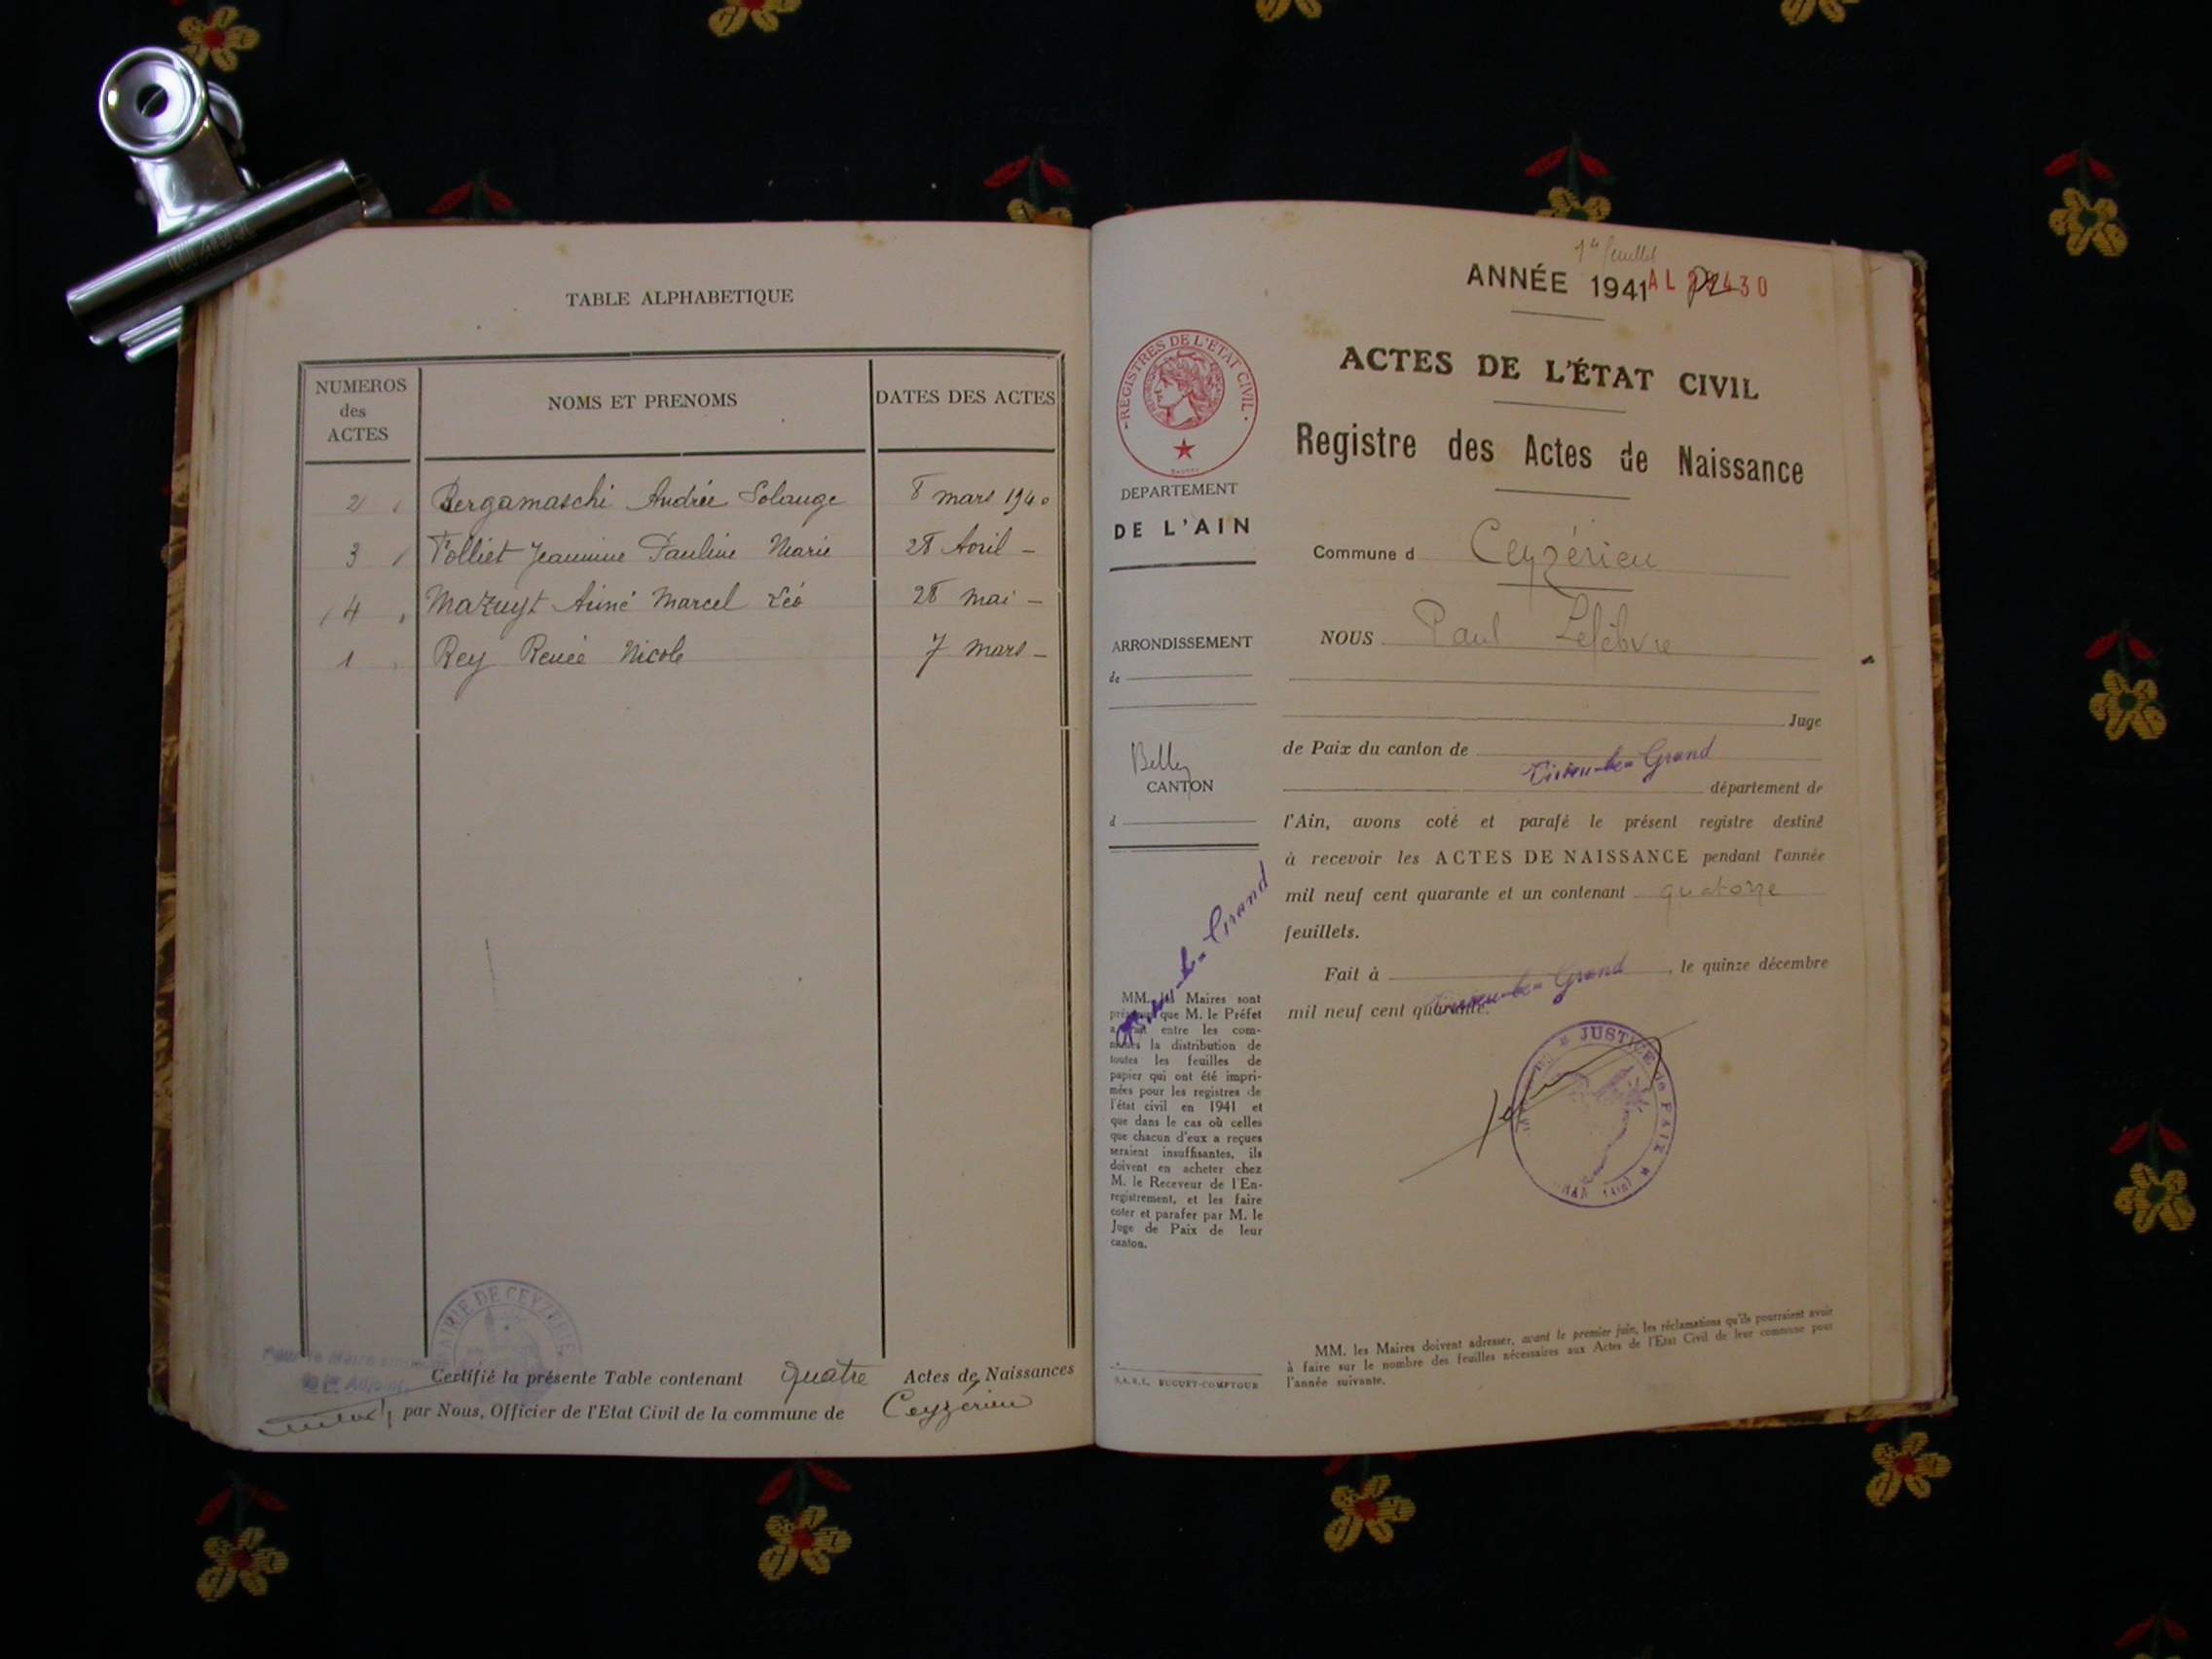 TABLE ALPHABETIQUE
NUMEROS
des
ACTES
NOMS ET PRENOMS
DATES DES ACTES
2 Bergamaschi Andrée Solange 8 mars 1940
3 Folliet Jeannine Pauline Marie 28 Avril -
4 Mazuyt Aimé Marcel Léo 28 mai -
1 Rey Renée Nicole 7 mars -
MAIRIE DE CEYZERIEU
Certifié la présente Table contenant quatre Actes de Naissances
par Nous, Officier de l'Etat Civil de la commune de Ceyzérieu
1er feuillet
ANNÉE 1941
ACTES DE L'ÉTAT CIVIL
Registre des Actes de Naissance
REGISTRES DE L'ETAT CIVIL
DEPARTEMENT
DE L'AIN
ARRONDISSEMENT
de
Belley
CANTON
d
Virieu-le-Grand
MM. les Maires sont
prévenus que M. le Préfet
a fait entre les com-
munes la distribution de
toutes les feuilles de
papier qui ont été impri-
mées pour les registres de
l'état civil en 1941 et
que dans le cas où celles
que chacun d'eux a reçues
seraient insuffisantes, ils
doivent en acheter chez
M. le Receveur de l'En-
registrement, et les faire
coter et parafer par M. le
Juge de Paix de leur
canton.
Commune d Ceyzérieu
NOUS Paul Lefèbvre
Juge
de Paix du canton de
Virieu-le-Grand
département de
l'Ain, avons coté et parafé le présent registre destiné
à recevoir les ACTES DE NAISSANCE pendant l'année
mil neuf cent quarante et un contenant quatorze
feuillets.
Fait à Virieu-le-Grand, le quinze décembre
mil neuf cent quarante.
JUSTICE de PAIX
MM. les Maires doivent adresser, avant le premier juin, les réclamations qu'ils pourraient avoir
à faire sur le nombre des feuilles nécessaires aux Actes de l'Etat Civil de leur commune pour
l'année suivante.
S.A.R.L. BUGUET-COMPTOUR